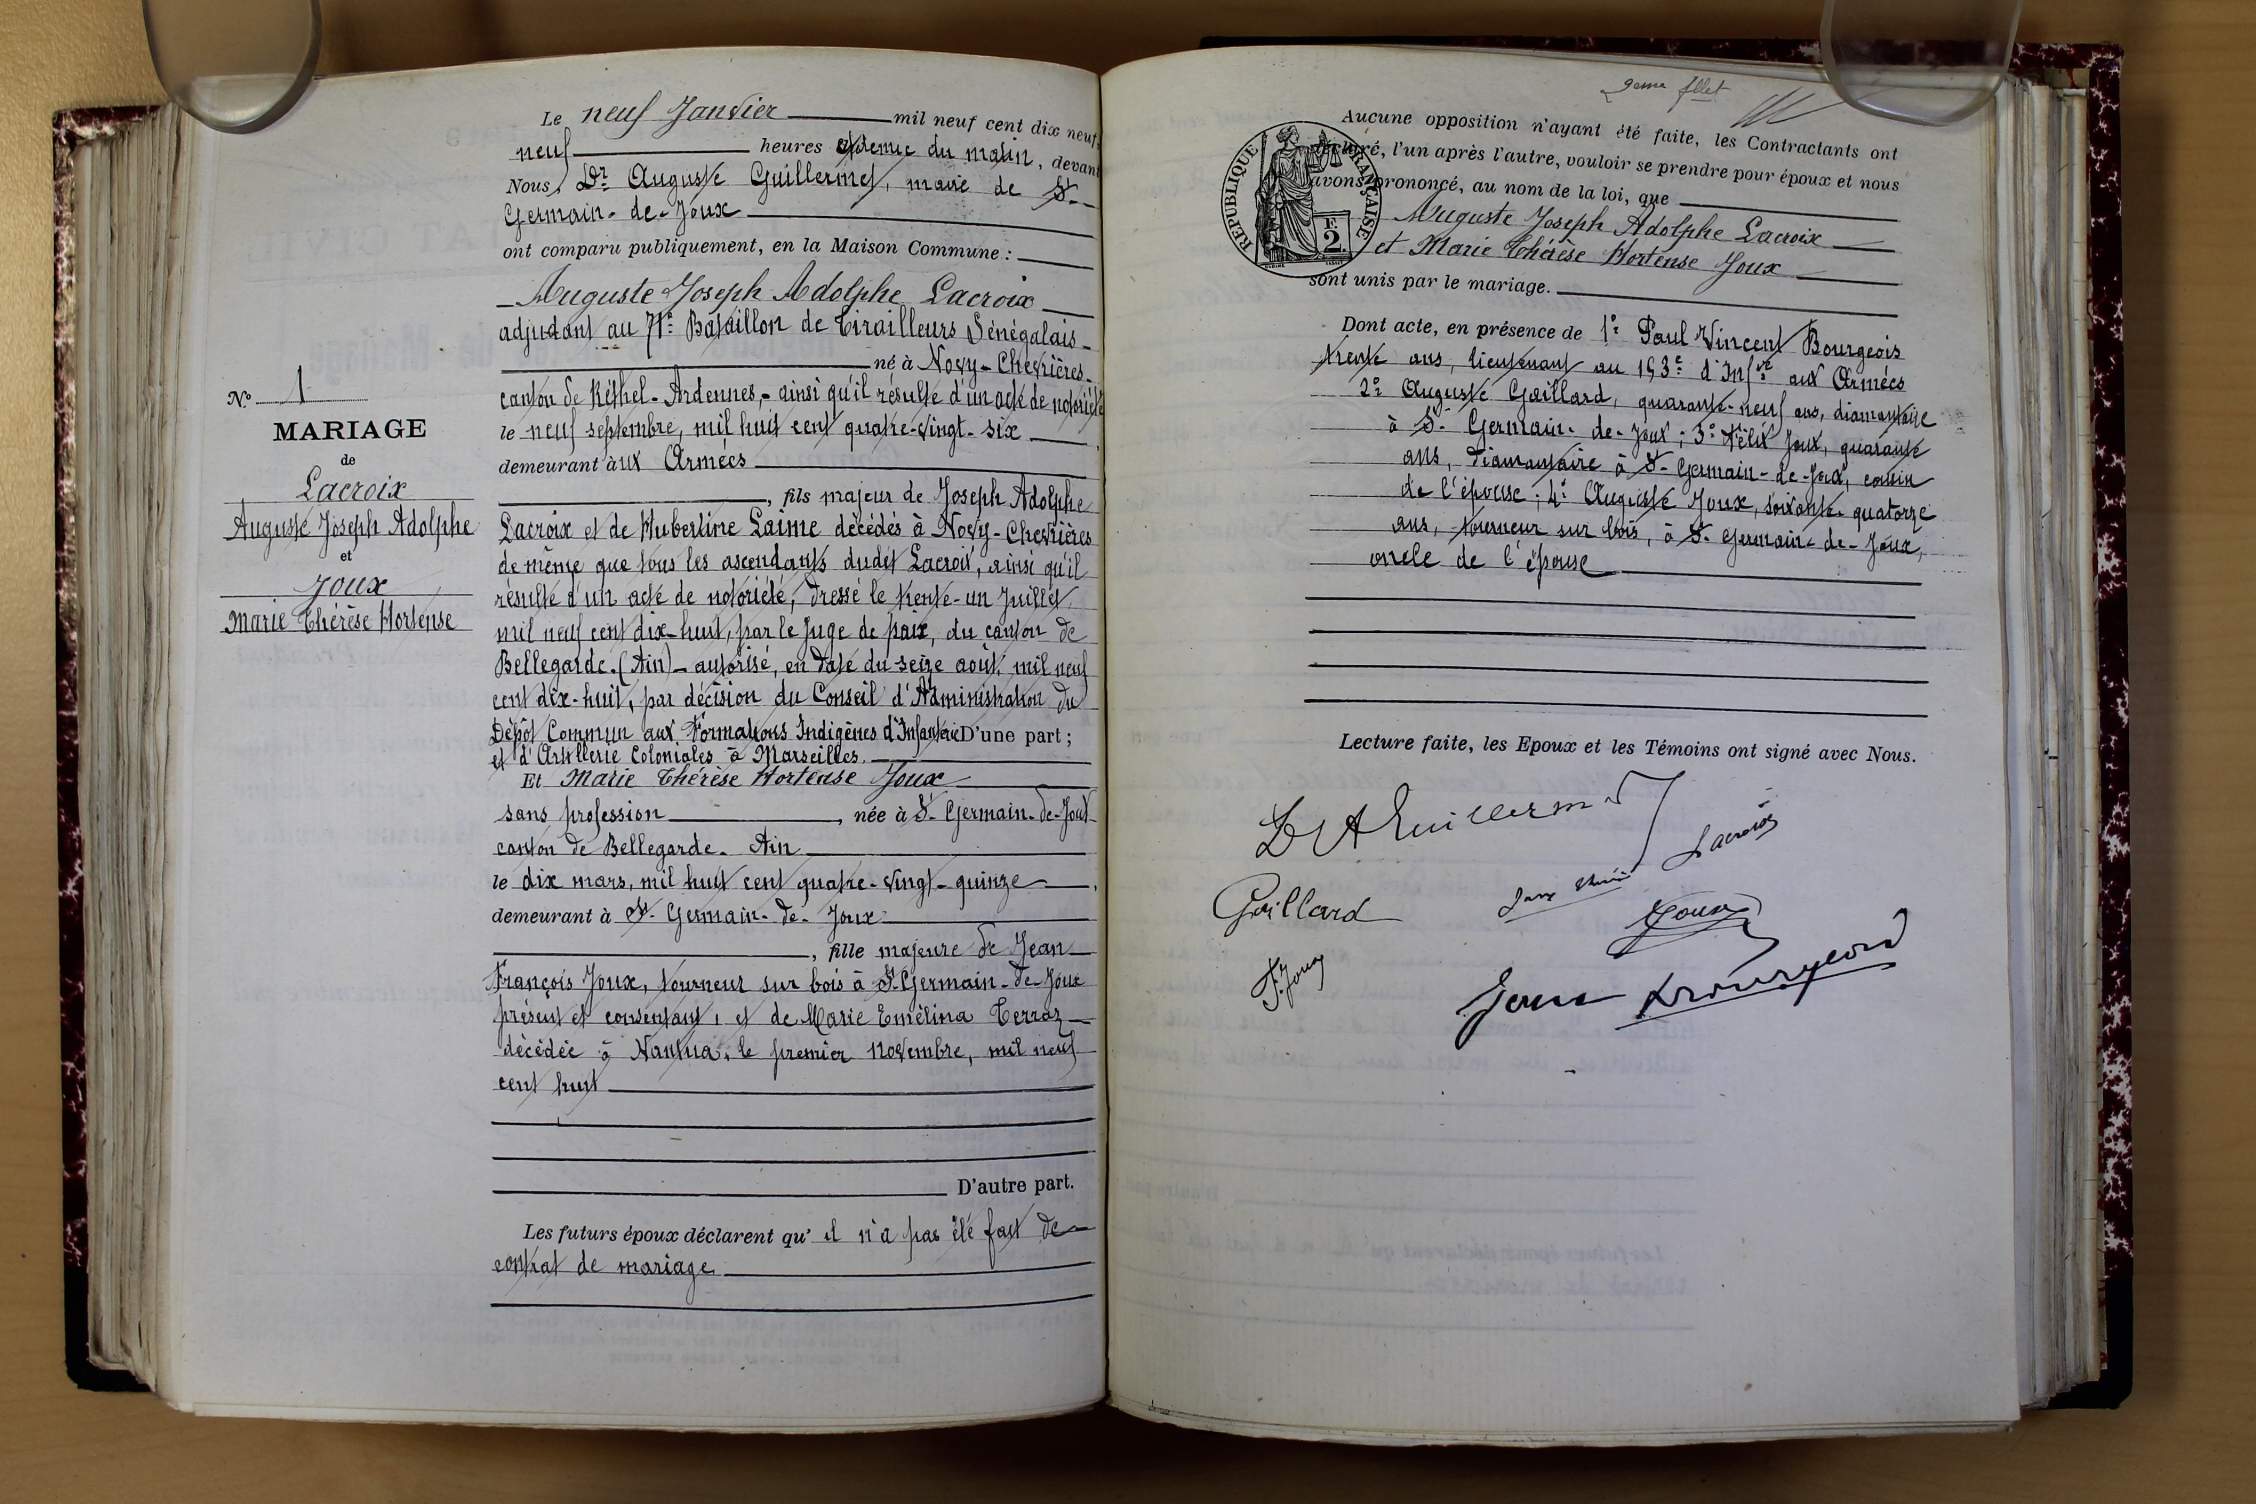 N.º 1
MARIAGE
de
Lacroix
Auguste Joseph Adolphe
et
Joux
Marie Thérèse Hortense
Le neuf Janvier mil neuf cent dix neuf,
neuf heures et demie du matin, devant
Nous, Dr Auguste Guillermet, maire de St-
Germain-de-Joux
ont comparu publiquement, en la Maison Commune :
Auguste Joseph Adolphe Lacroix
adjudant au 71e Bataillon de Tirailleurs Sénégalais
né à Novy-Chevrières
canton de Réthel-Ardennes,- ainsi qu'il résulte d'un acte de notoriété
le neuf septembre, mil huit cent quatre-vingt-six
demeurant aux Armées
, fils majeur de Joseph Adolphe
Lacroix et de Hubertine Laime décédés à Novy-Chevrières
de même que tous les ascendants dudit Lacroix, ainsi qu'il
résulte d'un acte de notoriété, dressé le trente-un Juillet
mil neuf cent dix-huit, par le Juge de paix, du canton de
Bellegarde.(Ain)- autorisé, en date du seize août, mil neuf
cent dix-huit, par décision du Conseil d'Administration du
Dépôt Commun aux Formations Indigènes d'Infanterie D'une part ;
et d'Artillerie Coloniales à Marseilles.
Et Marie Thérèse Hortense Joux
sans profession, née à St-Germain-de-Joux
canton de Bellegarde. Ain
le dix mars, mil huit cent quatre-vingt-quinze
demeurant à St-Germain-de-Joux
, fille majeure de Jean
François Joux, tourneur sur bois à St-Germain-de Joux
présent et consentant, et de Marie Emélina Terraz
décédée à Nantua, le premier novembre, mil neuf
cent huit
D'autre part.
Les futurs époux déclarent qu'il n'a pas été fait de
contrat de mariage
REPUBLIQUE FRANÇAISE
F.
2
Aucune opposition n'ayant été faite, les Contractants ont
déclaré, l'un après l'autre, vouloir se prendre pour époux et nous
avons prononcé, au nom de la loi, que
Auguste Joseph Adolphe Lacroix
et Marie Thérèse Hortense Joux
sont unis par le mariage.
Dont acte, en présence de 1° Paul Vincent Bourgeois
trente ans, lieutenant au 153e d'Infie aux Armées
2° Auguste Gaillard, quarante-neuf ans, diamantaire
à St-Germain-de-Joux ; 3° Félix Joux, quarante
ans, diamantaire à St-Germain-de-Joux, cousin
de l'épouse ; 4° Auguste Joux, soixante-quatorze
ans, tourneur sur bois, à St-Germain-de-Joux,
oncle de l'épouse
Lecture faite, les Epoux et les Témoins ont signé avec Nous.
Dr A Guillermet
Lacroix
Gaillard
Joux
F. Joux
Joux Bourgeois